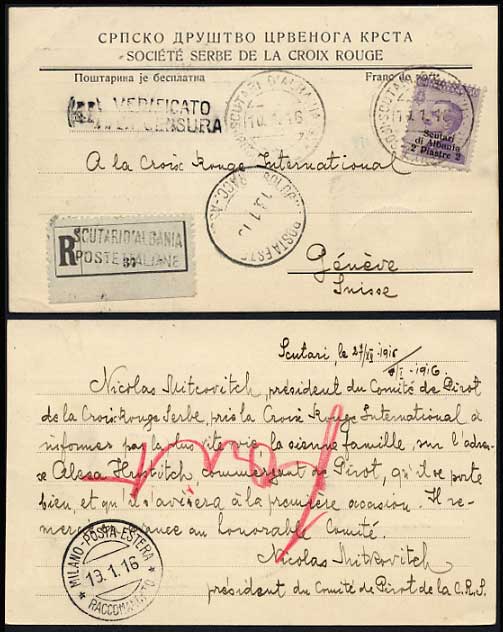 СРПСКО ДРУШТВО ЦРВЕНОГА КРСТА
SOCIÉTÉ SERBE DE LA CROIX ROUGE
Поштарина је бесплатна
Franc de port
VERIFICATO
PER CENSURA
SCUTARI D'ALBANIA
10.1.16
10.1.16
Scutari
di Albania
2 Piastre 2
A la Croix Rouge International
13.1.16
POSTA ESTE
R
SCUTARI D'ALBANIA
POSTE ITALIANE
Génève
Suisse
Scutari, le 27/XII-1915
I-1916
Nicolas Mitcovitch, président du Comité de Pirot
de la Croix Rouge Serbe, pris la Croix Rouge International à
informer par la plus vite vie la sienne famille, sur l'adres-
se Alexa Hristitch, commerçant de Pirot, qu'il se porte
bien, et qu'il s'avisera à la première occasion. Il re-
merci d'avance au honorable Comité.
Nicolas Mitkovitch
président du Comité de Pirot de la C.R.S.
MILANO-POSTA-ESTERA
13.1.16
RACCOMANDATO